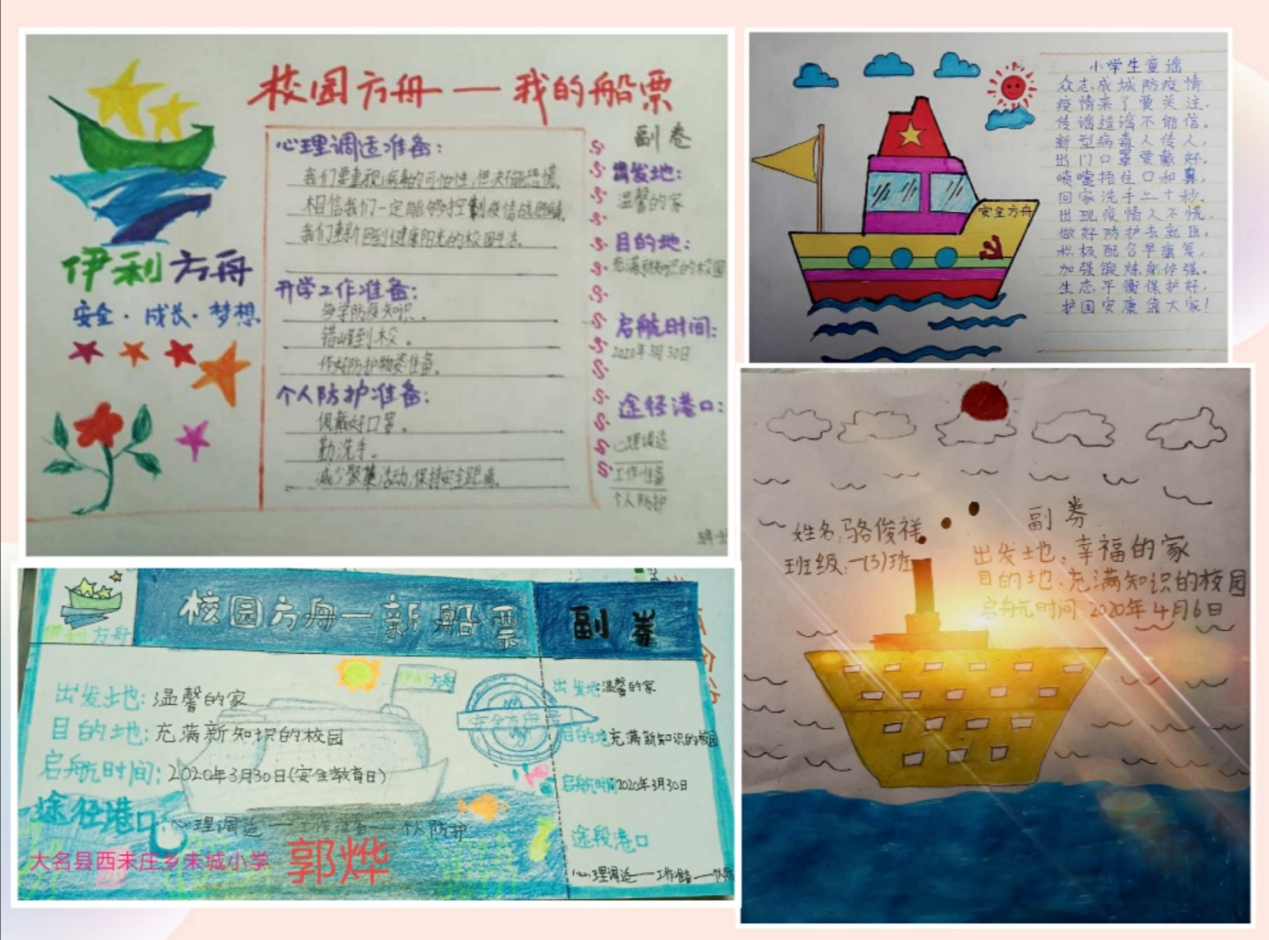 校园方舟——我的船票
心理调适准备:
我们要重视病毒的可怕性,但决不能恐慌。
相信我们一定能够控制疫情战胜病毒。
我们重新回到健康阳光的校园生活。
开学工作准备:
多学防疫知识。
错峰到校。
作好防护物资准备。
个人防护准备:
佩戴好口罩。
勤洗手。
减少聚集活动,保持安全距离。
伊利方舟
安全·成长·梦想
副卷
出发地:
温馨的家
目的地:
充满新知识的校园
启航时间:
2020年3月30日
途径港口:
心理调适
工作准备
个人防护
小学生童谣
众志成城防疫情
疫情来了要关注,
传谣造谣不能信。
新型病毒人传人,
出门口罩要戴好。
喷嚏捂住口和鼻,
回家洗手二十秒。
出现疫情人不慌,
做好防护去就医。
积极配合早康复,
加强锻炼身体强。
生态平衡保护好,
护国安康靠大家!
安全方舟
校园方舟—新船票
副券
伊利方舟
出发地:温馨的家
目的地:充满新知识的校园
启航时间:2020年3月30日(安全教育日)
途径港口:心理调适——工作准备——个人防护
安全方舟
出发地:温馨的家
目的地:充满新知识的校园
启航时间2020年3月30日
途段港口
心理调适——工作准备——个人防
大名县西未庄乡未城小学
郭烨
姓名:骆俊祥
班级:一(3)班
副券
出发地:幸福的家
目的地:充满知识的校园
启航时间:2020年4月6日